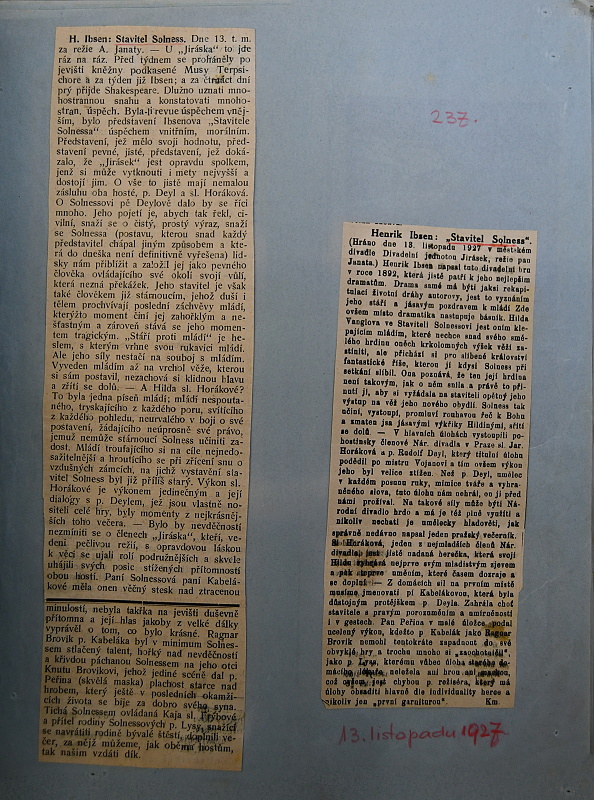 H. Ibsen: Stavitel Solness. Dne 13. t. m.
za režie A. Janaty. — U „Jiráska“ to jde
ráz na ráz. Před týdnem se proháněly po
jevišti kněžny podkasené Musy Terpsi-
chore a za týden již Ibsen; a za čtrnáct dní
prý přijde Shakespeare. Dlužno uznati mno-
hostrannou snahu a konstatovati mnoho-
stran. úspěch. Byla-li revue úspěchem vněj-
ším, bylo představení Ibsenova „Stavitele
Solnessa“ úspěchem vnitřním, morálním.
Představení, jež mělo svoji hodnotu, před-
stavení pevné, jisté, představení, jež doká-
zalo, že „Jirásek“ jest opravdu spolkem,
jenž si může vytknouti i mety nejvyšší a
dostojí jim. O vše to jistě mají nemalou
zásluhu oba hosté, p. Deyl a sl. Horáková.
O Solnessovi pě Deylově dalo by se říci
mnoho. Jeho pojetí je, abych tak řekl, ci-
vilní, snaží se o čistý, prostý výraz, snaží
se Solnessa (postavu, kterou snad každý
představitel chápal jiným způsobem a kte-
rá do dneška není definitivně vyřešena) lid-
sky nám přiblížit a založil jej jako pevného
člověka ovládajícího své okolí svojí vůlí,
která nezná překážek. Jeho stavitel je však
také člověkem již stárnoucím, jehož duší i
tělem prochvívají poslední záchvěvy mládí,
kterýžto moment činí jej zahořklým a ne-
šťastným a zároveň stává se jeho momen-
tem tragickým. „Stáří proti mládí“ je he-
slem, s kterým vrhne svou rukavici mládí.
Ale jeho síly nestačí na souboj s mládím.
Vyveden mládím až na vrchol věže, kterou
si sám postavil, nezachová si klidnou hlavu
a zřítí se dolů. — A Hilda sl. Horákové?
To byla jedna píseň mládí; mládí nespouta-
ného, tryskajícího z každého poru, svítícího
z každého pohledu, neurvalého v boji o své
postavení, žádajícího neúprosně své právo,
jemuž nemůže stárnoucí Solness učiniti za-
dost. Mládí troufajícího si na cíle nejnedo-
sažitelnější a hroutícího se při zřícení snu o
vzdušných zámcích, na jichž vystavění sta-
vitel Solness byl již příliš starý. Výkon sl.
Horákové je výkonem jedinečným a její
dialogy s p. Deylem, jež jsou vlastně no-
siteli celé hry, byly momenty z nejkrásněj-
ších toho večera. — Bylo by nevděčností
nezmíniti se o členech „Jiráska“, kteří, ve-
deni pečlivou režií, s opravdovou láskou
k věci se ujali rolí podružnějších a skvěle
uhájili svých posic stížených přítomností
obou hostí. Paní Solnessová paní Kabelá-
kové měla onen věčný stesk nad ztracenou
minulostí, nebyla takřka na jevišti duševně
přítomna a její hlas jakoby z velké dálky
vyprávěl o tom, co bylo krásné. Ragnar
Brovik p. Kabeláka byl v minimum Solnes-
sem stlačený talent, hořký nad nevděčností
a křivdou páchanou Solnessem na jeho otci
Knutu Brovikovi, jehož jediné scéně dal p.
Peřina (skvělá maska) plachost starce nad
hrobem, který ještě v posledních okamži-
cích života se bije za dobro svého syna.
Tichá Solnessem ovládaná Kaja sl. Frýbové
a přítel rodiny Solnessových p. Lysý, snažící
se navrátiti rodině bývalé štěstí, doplnili ve-
čer, za nějž můžeme, jak oběma hostům,
tak našim vzdáti dík.
237.
Henrik Ibsen: „Stavitel Solness“.
(Hráno dne 13. listopadu 1927 v městském
divadle Divadelní jednotou Jirásek, režie pan
Janata.) Henrik Ibsen napsal tuto divadelní hru
v roce 1892, která jistě patří k jeho nejlepším
dramatům. Drama samé má býti jaksi rekapi-
tulací životní dráhy autorovy, jest to vyznáním
jeho stáří a jásavým pozdravem k mládí. Zde
ovšem místo dramatika nastupuje básník. Hilda
Vanglova ve Staviteli Solnessovi jest oním kle-
pajícím mládím, které nechce snad svého smě-
lého hrdinu oněch krkolomných výšek věží za-
stíniti, ale přichází si pro slíbené království
fantastické říše, kterou jí kdysi Solness při
setkání slíbil. Ona poznává, že ten její hrdina
není takovým, jak o něm snila a právě to při-
nutí ji, aby si vyžádala na staviteli opětný jeho
výstup na věž jeho nového obydlí. Solness tak
učiní, vystoupí, promluví rouhavou řeč k Bohu
a zmaten jsa jásavými výkřiky Hildinými, zřítí
se dolů. — V hlavních úlohách vystoupili po-
hostinsky členové Nár. divadla v Praze sl. Jar.
Horáková a p. Rudolf Deyl, který titulní úlohu
podědil po mistru Vojanovi a tím ovšem výkon
jeho byl velice stížen. Než p. Deyl, umělec
v každém posunu ruky, mimice tváře a vybra-
ného slova, tuto úlohu nám nehrál, on ji před
námi prožíval. Na takové síly může býti Ná-
rodní divadlo hrdo a má je též plně využíti a
nikoliv nechati je umělecky hladověti, jak
správně nedávno napsal jeden pražský večerník.
Sl. Horáková, jeden z nejmladších členů Nár.
divadla, jest jistě nadaná herečka, která svoji
Hildu vyhrává nejprve svým mladistvým zjevem
a pak teprve uměním, které časem dozraje a
se doplní. — Z domácích sil na prvním místě
musíme jmenovati pí Kabelákovou, která byla
důstojným protějškem p. Deyla. Zahrála choť
stavitele s pravým porozuměním a umírněností
i v gestech. Pan Peřina v malé úložce podal
ucelený výkon, kdežto p. Kabelák jako Ragnar
Brovik nemohl tentokráte zapadnout do své
obvyklé hry a trochu mnoho si „zaochotničil“,
jako p. Lysý, kterému vůbec úloha starého do-
mácího lékaře neležela ani hrou ani maskou,
což ovšem jest chybou p. režiséra, který má
úlohy obsaditi hlavně dle individuality herce a
nikoliv jen „první garniturou“. Km.
13. listopadu 1927